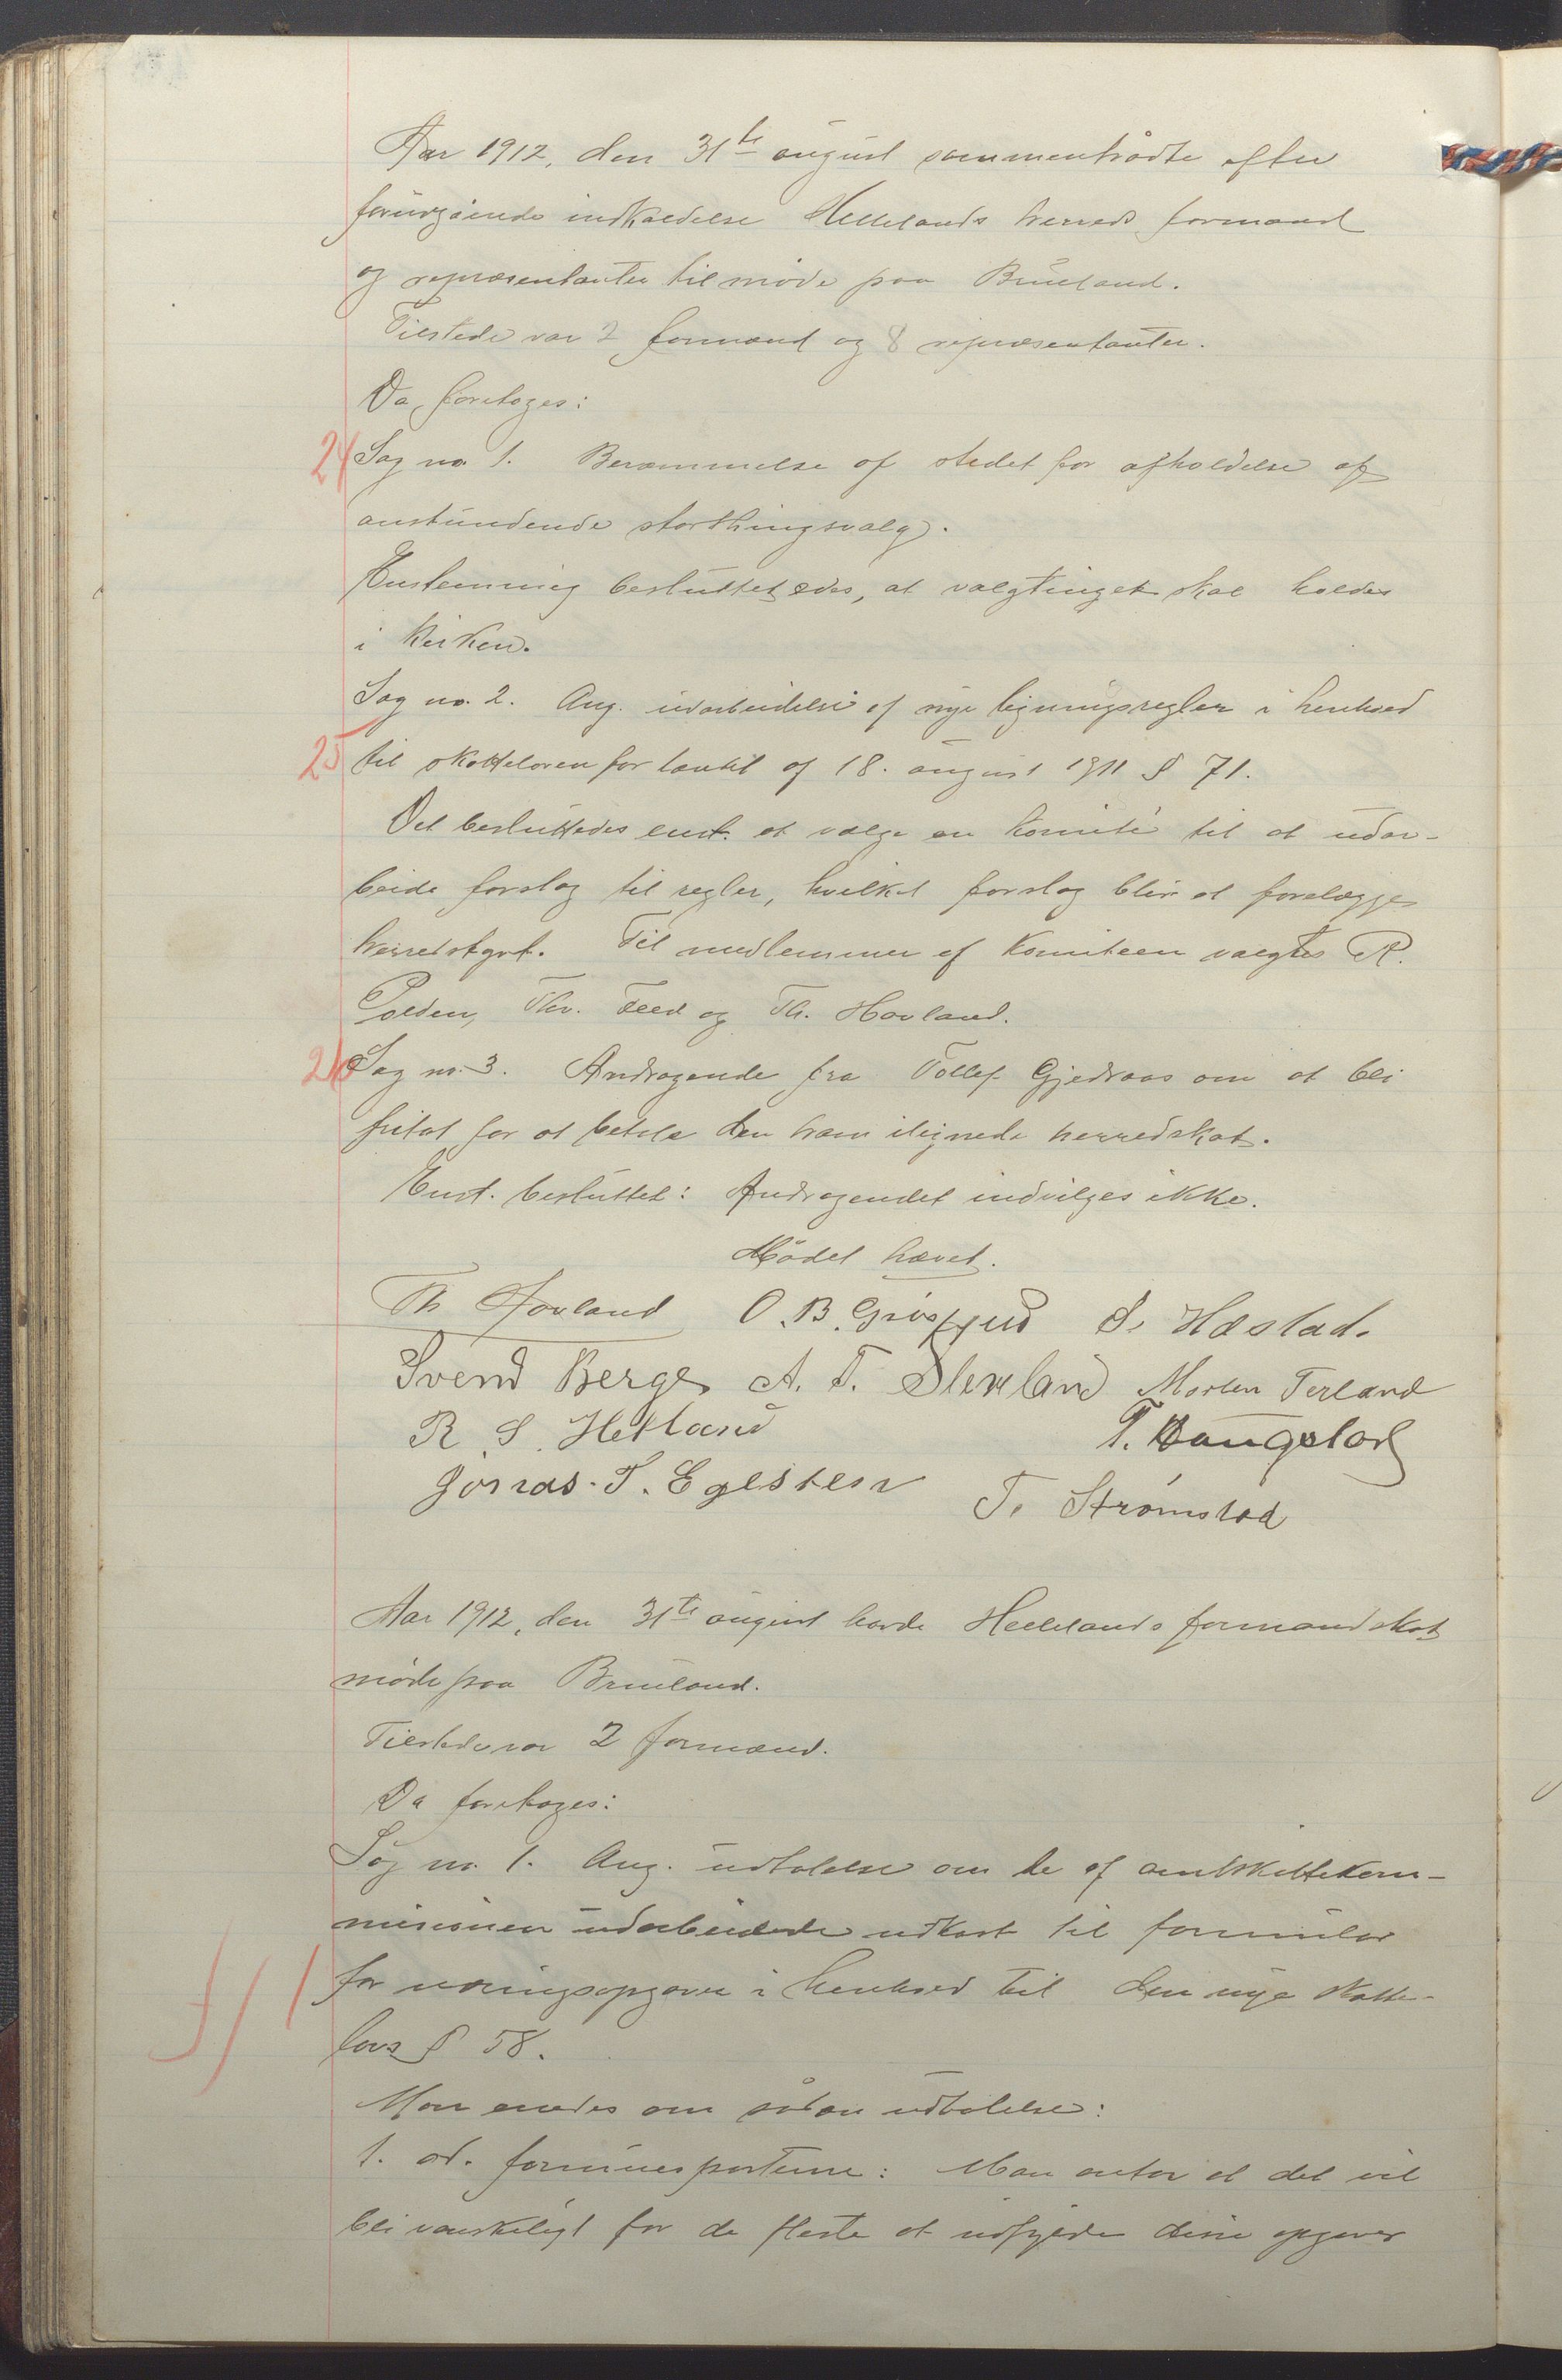 Aar 1912, den 31te august sammentrådte efter
forudgående indkaldelse Hellelands herreds formænd
og repræsentanter til møde paa Brueland.
Tilstede var 2 formænd og 8 repræsentanter.
Da foretoges:
24 Sag no 1. Berammelse af stedet for afholdelse af
anstundende storthingsvalg.
Enstemmig besluttedes, at valgtinget skal holdes
i kirken.
Sag no. 2. Ang. udarbeidelse af nye ligningsregler i henhold
25 til skatteloven for landet af 18. august 1911 § 71.
Det besluttedes enst. at vælge en komité til at udar-
beide forslag til regler, hvilket forslag blir at forelægge
herredstyret. Til medlemmer af komiteen valgtes R.
Thv. og Th. Hovland.
26 Sag no. 3. Andragende fra Tollef Gjedraas om at bli
fritat for at betale den ham ilignede herredskat.
Enst. besluttet: Andragendet indvilges ikke.
Mødet hævet.
Th Hovland O. B. Grøsfjeld S. Hæstad.
Svend Berge A. T. Slettland Morten Terland
R. S. Hetland T. Haugstad
Jonas. T. Eglesteen T. Strømstad
Aar 1912, den 31te august havde Hellelands formandskab
møde paa Brueland.
Tilstede var 2 formænd.
Da foretoges:
Sag no. 1. Ang. udtalelse om de af amtskattekom-
missionen udarbeidede udkast til formular
for næringsopgaver i henhold til den nye skatte-
lovs § 58.
Man enedes om sådan udtalelse:
1. ad. formuesposterne: Man antar at det vil
bli vanskeligt for de fleste at udfylde disse opgaver